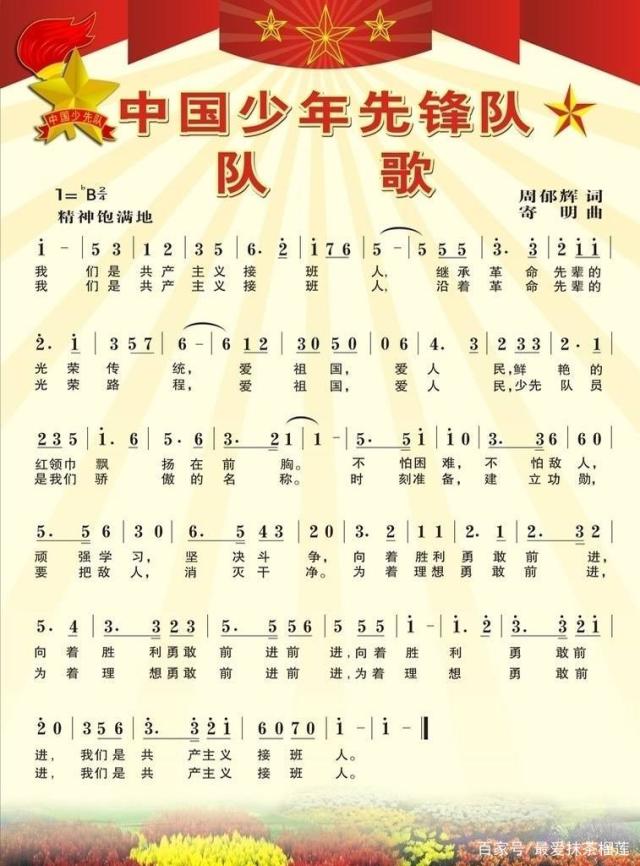 中国少先队
中国少年先锋队
队 歌
1=ᵇB 2/4
周郁辉 词
精神饱满地
寄 明 曲
i - | 5 3 | 1 2 | 3 5 | 6. 2̇ | i 7 6 | 5 - | 5 5 5 | 3̇. 3̇ | 2̇ i i |
我 们是 共产 主义 接 班 人, 继承 革 命 先辈的
我 们是 共产 主义 接 班 人, 沿着 革 命 先辈的
2̇. i | 3 5 7 | 6 - | 6 1 2 | 3 0 5 0 | 0 6 | 4. 3 | 2 3 3 | 2. 1 |
光 荣 传 统, 爱 祖 国, 爱 人 民,鲜 艳 的
光 荣 路 程, 爱 祖 国, 爱 人 民,少先 队 员
2 3 5 | i. 6 | 5. 6 | 3. 2 1 | 1 - | 5. 5 i | 6. 4 | 3. 3 6 | 6 0 |
红领巾 飘 扬 在 前 胸。 不 怕困 难, 不 怕敌 人,
是我们 骄 傲 的 名 称。 时 刻准 备, 建 立功 勋,
5. 5 6 | 3 0 | 6. 5 4 3 | 2 0 | 3. 2 | 1 1 | 2. 1 | 2. 3 2 |
顽 强学 习, 坚 决斗 争, 向 着 胜利 勇 敢 前 进,
要 把敌 人, 消 灭干 净。 为 着 理想 勇 敢 前 进,
5. 4 | 3. 3 2 3 | 5. 5 5 6 | 5 5 6 | i - | i. 2̇ | 3̇. 3̇ 2̇ i |
向 着 胜 利勇敢 前 进前 进,向着 胜 利 勇 敢前
为 着 理 想勇敢 前 进前 进,为着 理 想 勇 敢前
2̇ 0 | 3 5 6 | 3̇. 3̇ 2̇ i | 6 0 7 0 | i - | i - ‖
进, 我们是 共 产主义 接 班 人。
进, 我们是 共 产主义 接 班 人。
百家号/最爱抹茶榴莲